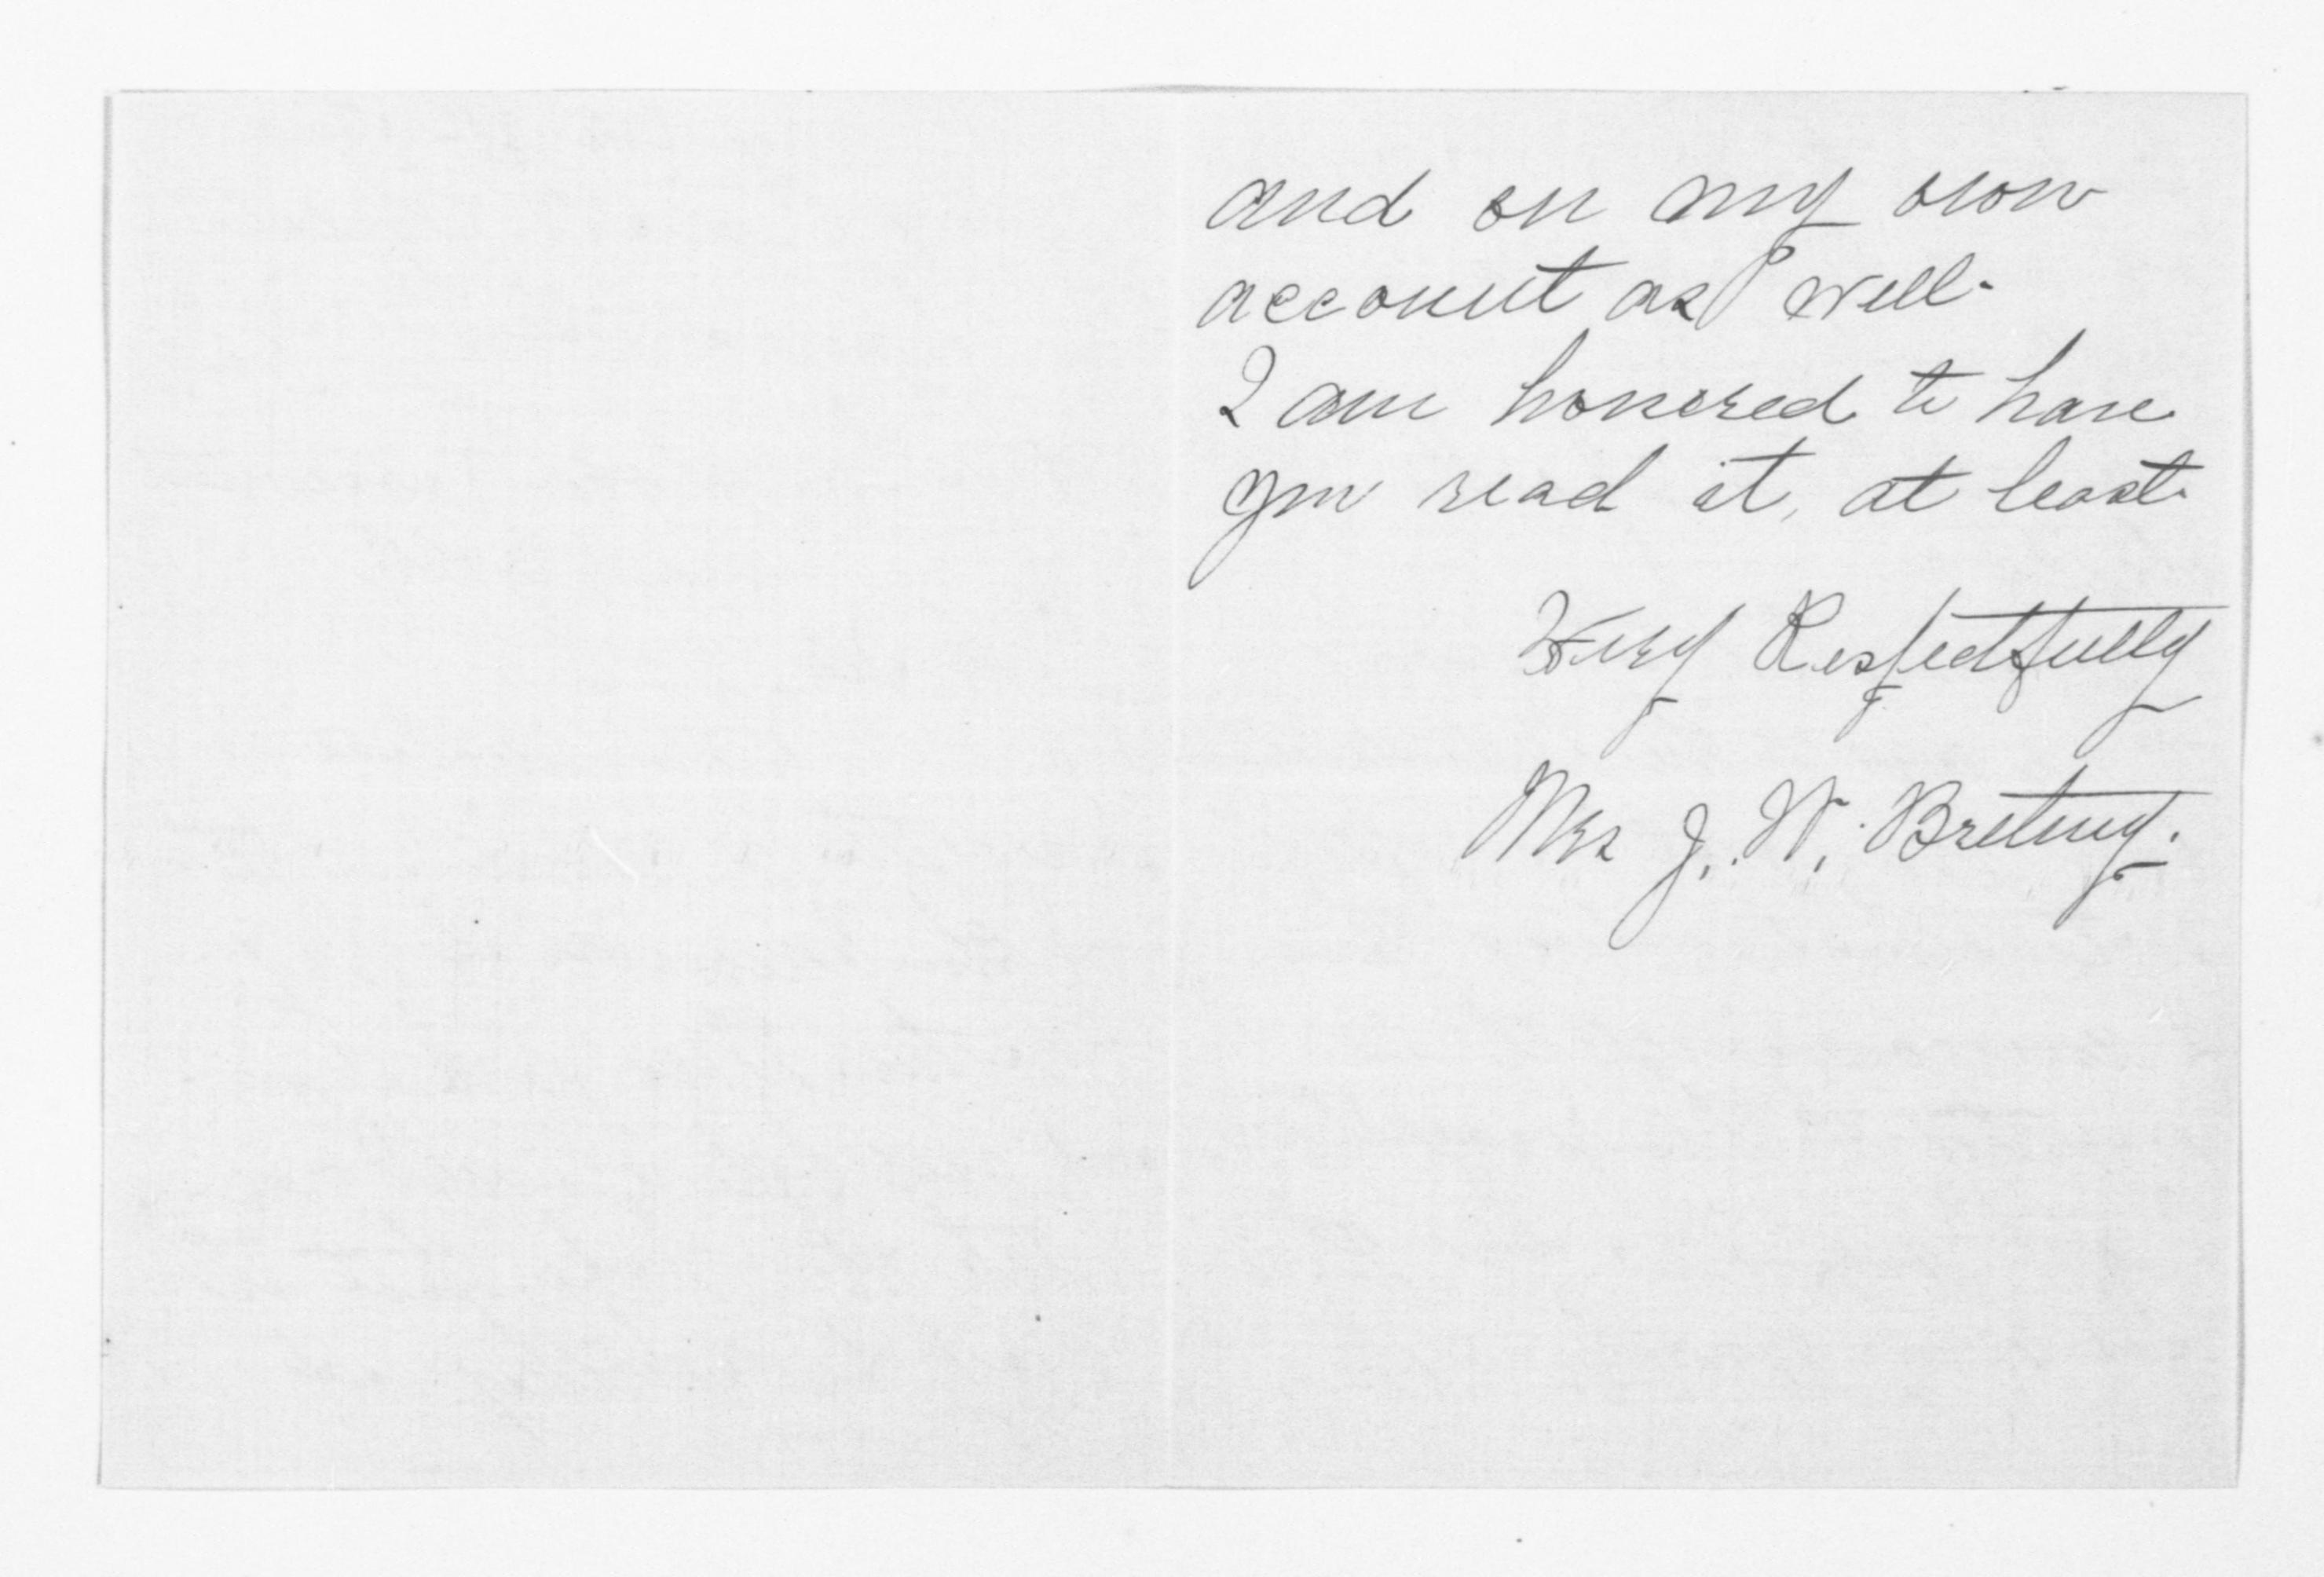 and on my own
account as well.
I am honored to have
you read it, at least.
Very Respectfully
Mrs J. W.